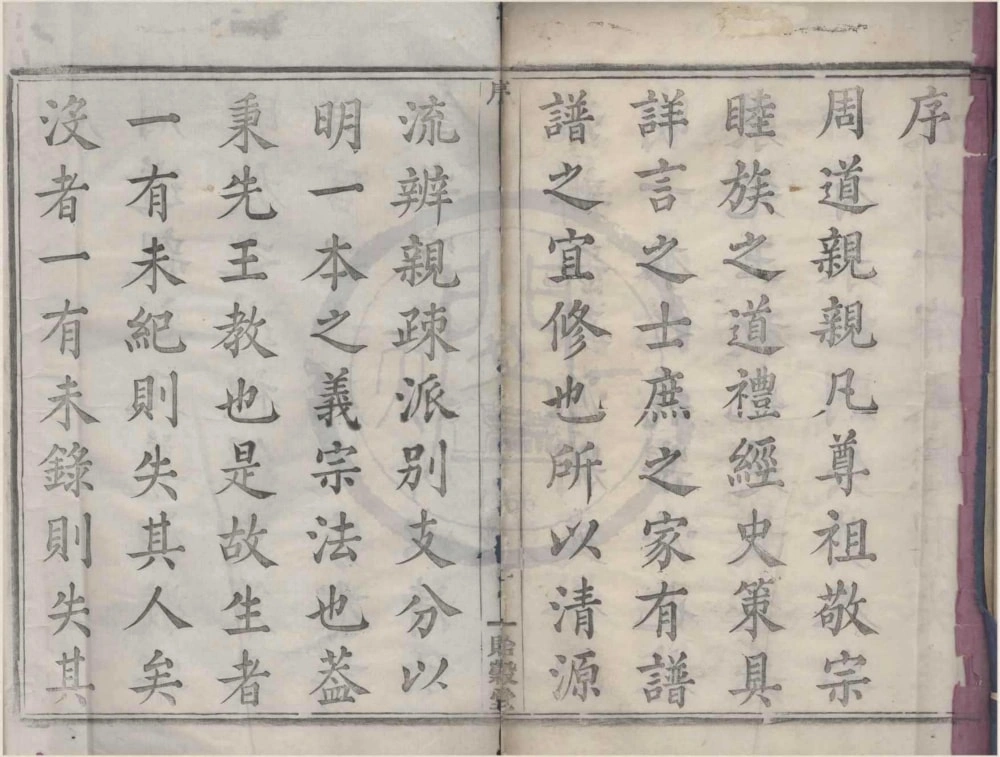 序
周道親親凡尊祖敬宗
睦族之道禮經史策具
詳言之士庶之家有譜
譜之宜修也所以清源
序
一
流辨親疎派别支分以
明一本之義宗法也葢
秉先王教也是故生者
一有未紀則失其人矣
沒者一有未錄則失其